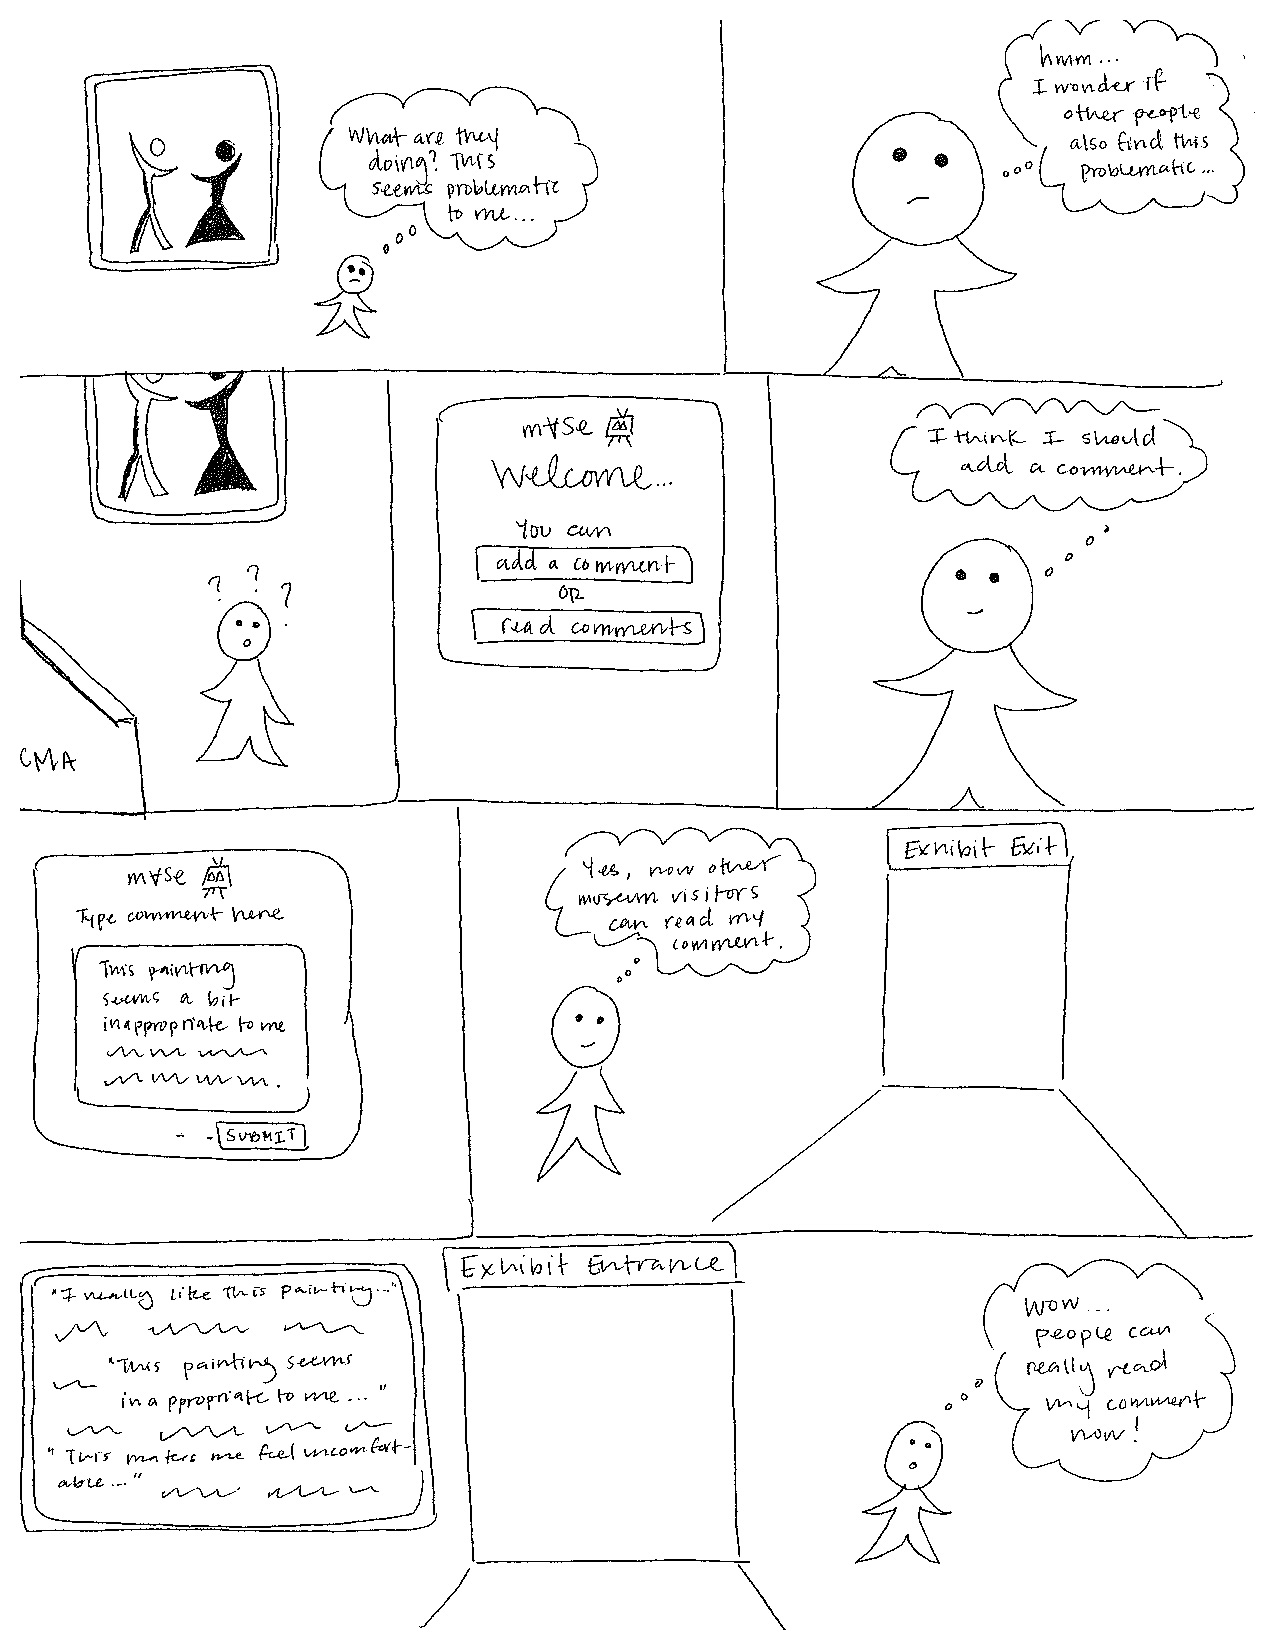 What are they
doing? This
seems problematic
to me...
hmm...
I wonder if
other people
also find this
problematic...
? ? ?
CMA
m∀se
Welcome...
You can
add a comment
or
read comments
I think I should
add a comment.
m∀se
Type comment here
This painting
seems a bit
inappropriate to me
SUBMIT
Yes, now other
museum visitors
can read my
comment.
Exhibit Exit
"I really like this painting..."
"This painting seems
inappropriate to me..."
"This makes me feel uncomfort-
able..."
Exhibit Entrance
Wow...
people can
really read
my comment
now!